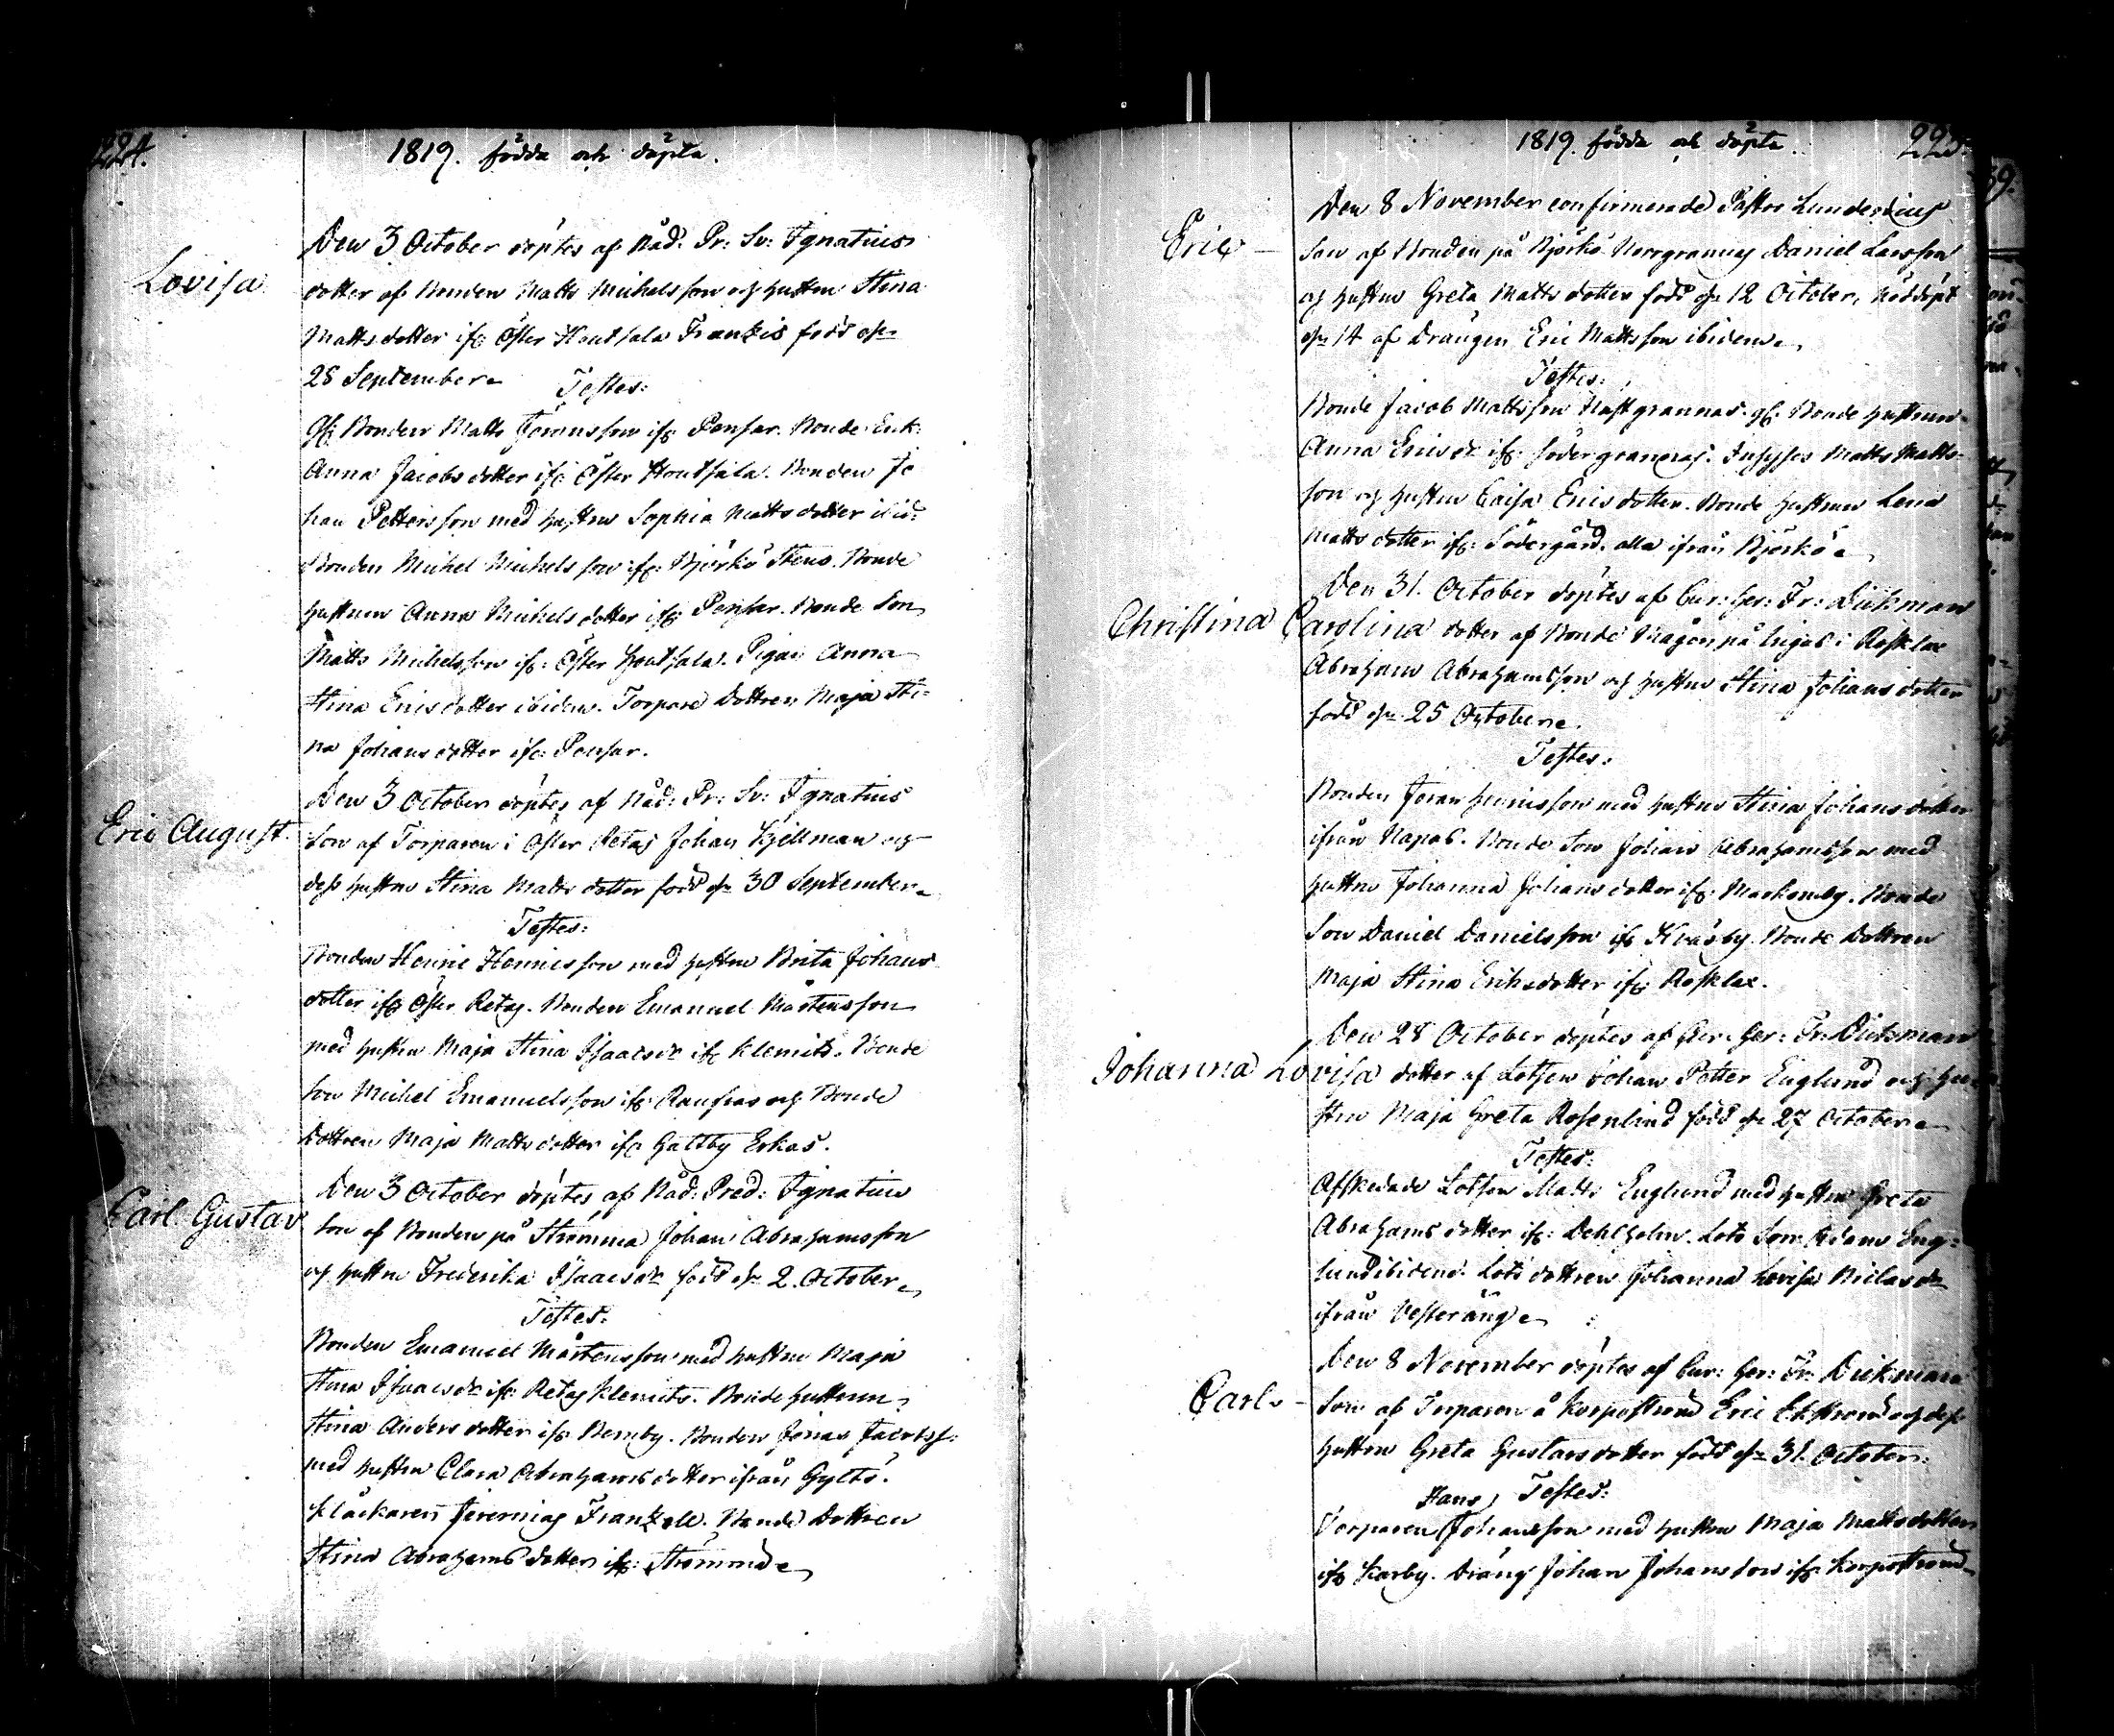 224.
1819. födda och döpta.
Lovisa
Den 3 October döptes af Nåd: Pr: Sv: Ignatius
dotter af Bonden Matts Michelsson och hustrun Stina
Mattsdotter ifr: Öster Houtsala Frankis född den
28 September
Testes:
Gf: Bonden Matts Göransson ifr: Pensar. Bonde Enk:
Anna Jacobsdotter ifr: Öster Houtsala. Bonden Jo
han Pettersson med hustrun Sophia Mattsdotter ibid:
Bonden Michel Michelsson ifr: Björkö Stens. Bonde
hustrun Anna Michelsdotter ifr: Pensar. Bonde Son
Matts Michelsson ifr: Öster Houtsala. Pigan Anna
Stina Ericsdotter ibidem. Torpare Dottren Maja Sti=
na Johansdotter ifr: Pensar.
Eric August.
Den 3 October döptes af Nåd: Pr: Sv: Ignatius
Son af Torparen i Öster Retas Johan Kjellman och
dess hustru Stina Mattsdotter född den 30 September
Testes:
Bonden Henric Henricsson med hustrun Brita Johans
dotter ifr Öster Retas. Bonden Emanuel Mårtensson
med hustrun Maja Stina Isaacsdr ifr Klemets. Bonde
son Michel Emanuelsson ifr och Bonde
Dottren Maja Mattsdotter ifr Galtby Erkas.
Carl Gustav
Den 3 October döptes af Nåd: Pred: Ignatius
son af Bonden på Strömma Johan Abrahamsson
och hustrun Frederika Isaacsdr född den 2 October
Testes:
Bonden Emanuel Mårtensson med hustrun Maja
Stina Isaacsdr ifr: Retas Klemets. Bonde hustrun
Stina Andersdotter ifr: Remby. Bonden Jonas Jacobss:
med hustrun Clara Abrahamsdotter ifrån Gyltö.
Klåckaren Jeremias Frantzell. Bonde Dottren
Stina Abrahamsdotter ifr: Strömma
1819. födda och döpta.
225.
Eric
Den 8 November confirmerade Pastor Lunderius
Son af Bonden på Björkö Norrgrannas Daniel Larsson
och hustrun Greta Mattsdotter född den 12 October, Nöddöpt
den 14 af Drängen Eric Mattsson ibidem
Testes:
Bonde Jacob Mattsson Nästgrannas. gf: Bonde hustrun
Anna Ericsdr ifr: Södergrannas. Inhyses Matts Matts=
son och hustrun Caisa Ericsdotter. Bonde hustrun Lena
Mattsdotter ifr: Södergård. alla ifrån Björkö
Christina Carolina
Den 31. October döptes af Cur: Her: Fr: Dickman
dotter af Bonde Mågen på Ingas i Rosklax
Abraham Abrahamsson och hustrun Stina Johansdotter
född den 25 October.
Testes:
Bonden Jöran Henricsson med hustrun Stina Johansdotter
ifrån Napas. Bonde Son Johan Abrahamsson med
hustrun Johanna Johansdotter ifr: Markomby. Bonde
Son Daniel Danielsson ifr Kråsby. Bonde Dottren
Maja Stina Ericksdotter ifr: Rosklax.
Johanna Lovisa
Den 28 October döptes af Cur: Her: Fr: Dickman
dotter af Lotsen Johan Petter Englund och hu=
strun Maja Greta Rosenlind född den 27 October
Testes:
Afskedade Lotsen Matts Englund med hustrun Greta
Abrahamsdotter ifr: Dehlholm. Lots Son Adam Eng=
lund ibidem. Lots dottren Johanna Lovisa Niclasdr
ifrån Vesteränge
Carl
Den 8 November döptes af Cur: Her: Fr: Dickman
Son af Torparen å Korpoström Eric Ekström och dess
hustrun Greta Gustavsdotter född den 31. October.
Testes:
Hans
Torparen Johansson med hustrun Maja Mattsdotter
ifr Karby. Dräng Johan Johansson ifr: Korpoström